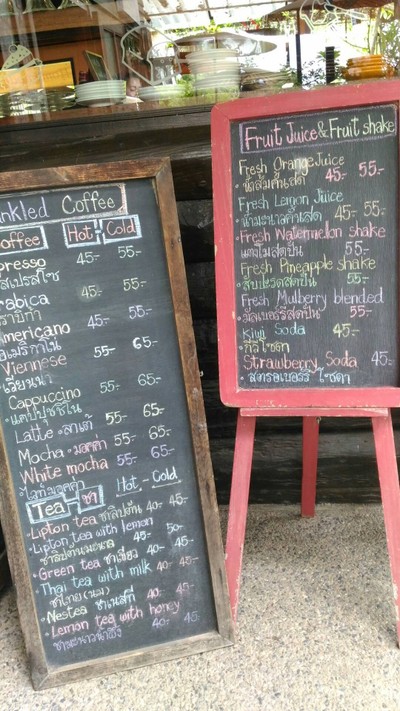 nkled Coffee
offee Hot Cold
presso 45.- 55.-
สเปรสโซ่
rabica 45.- 55.-
ราบิก้า
mericano 45.- 55.-
อเมริกาโน
Viennese 55- 65-
เวียนนา
Cappuccino 55- 65-
แคปปูชิโน
Latte ลาเต้ 55- 65-
Mocha มอคค่า 55- 65-
White mocha 55- 65-
ไวท์มอคค่า
Tea ชา Hot - Cold
Lipton tea ชาลิปตัน 40- 45-
Lipton tea with lemon 45- 50-
ชาลิปตันมะนาว
Green tea ชาเขียว 40- 45-
Thai tea with milk 40- 45-
ชาไทย (นม)
Nestea ชาเนสที 40- 45-
Lemon tea with honey 40- 45-
ชามะนาวน้ำผึ้ง
Fruit Juice & Fruit shake
Fresh Orange Juice
น้ำส้มคั้นสด 45- 55-
Fresh Lemon Juice
น้ำมะนาวคั้นสด 45- 55-
Fresh Watermellon shake
แตงโมสดปั่น 55-
Fresh Pineapple shake
สับปะรดสดปั่น 55-
Fresh Mulberry blended
มัลเบอร์รี่สดปั่น 55-
Kiwi Soda 45-
กีวีโซดา
Strawberry Soda 45-
สตรอเบอร์รี่ โซดา